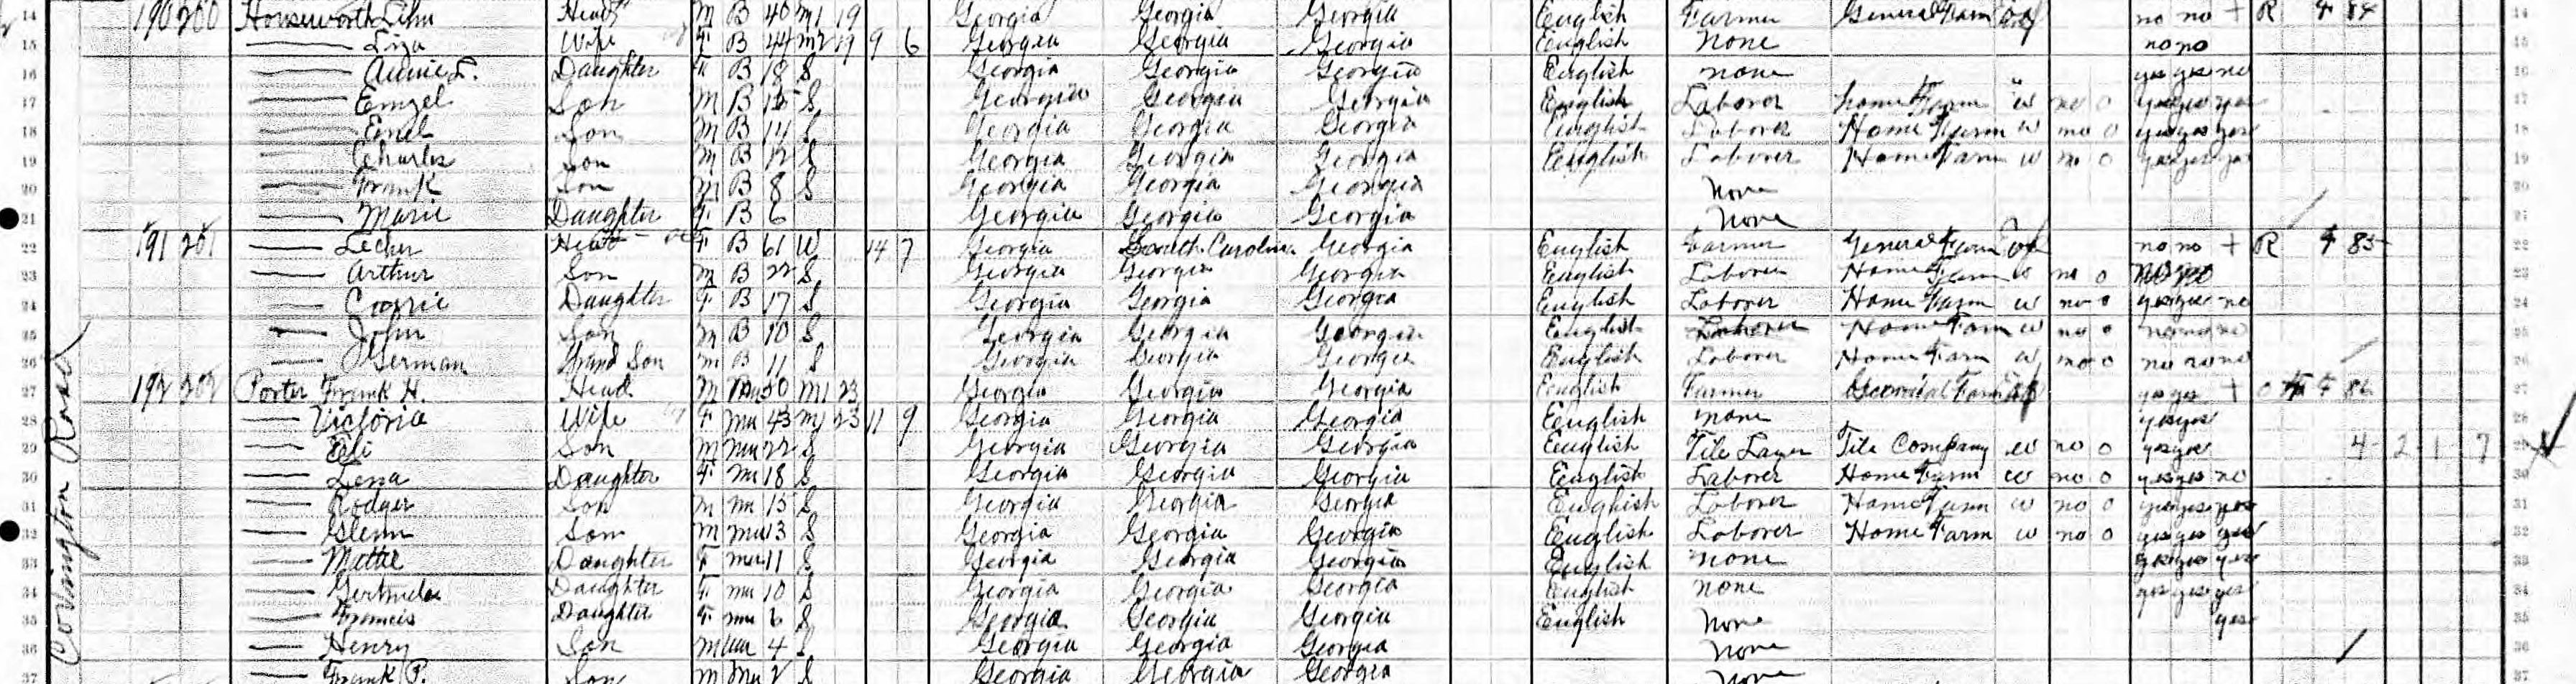 14 190 200 Houseworth John Head M B 40 M1 19 Georgia Georgia Georgia English Farmer General Farm no no R F 84 14
15 Liza Wife F B 44 M2 19 9 6 Georgia Georgia Georgia English None no no 15
16 Annie L. Daughter F B 18 S Georgia Georgia Georgia English none yes yes no 16
17 Emzel Son M B 15 S Georgia Georgia Georgia English Laborer home Farm W no 0 yes yes yes 17
18 Son M B 14 S Georgia Georgia Georgia English Laborer Home Farm W no 0 yes yes yes 18
19 Charles Son M B 12 S Georgia Georgia Georgia English Laborer Home Farm W no 0 yes yes yes 19
20 Frank Son M B 8 S Georgia Georgia Georgia None 20
21 Marie Daughter F B 6 Georgia Georgia Georgia None 21
22 191 201 Head F B 61 W 14 7 Georgia South Carolina Georgia English Farmer General Farm no no R F 85 22
23 Arthur Son M B 22 S Georgia Georgia Georgia English Laborer Home Farm W no 0 23
24 Daughter F B 17 S Georgia Georgia Georgia English Laborer Home Farm W no 0 yes yes no 24
25 John Son M B 10 S Georgia Georgia Georgia English Laborer Home Farm W no 0 no no no 25
26 German Grand Son M B 11 S Georgia Georgia Georgia English Laborer Home Farm W no 0 no no no 26
27 192 202 Porter Frank H. Head M Mu 50 M1 23 Georgia Georgia Georgia English Farmer General Farm yes yes O F 86 27
28 Victoria Wife F Mu 43 M1 23 11 9 Georgia Georgia Georgia English none yes yes 28
29 Eli Son M Mu 22 S Georgia Georgia Georgia English Tile Layer Tile Company W no 0 yes yes 4 2 1 7
30 Lena Daughter F Mu 18 S Georgia Georgia Georgia English Laborer Home Farm W no 0 yes yes no 30
31 Rodger Son M Mu 15 S Georgia Georgia Georgia English Laborer Home Farm W no 0 yes yes yes 31
32 Glenn Son M Mu 13 S Georgia Georgia Georgia English Laborer Home Farm W no 0 yes yes yes 32
33 Mattie Daughter F Mu 11 S Georgia Georgia Georgia English none yes yes yes 33
34 Gertrude Daughter F Mu 10 S Georgia Georgia Georgia English none yes yes yes 34
35 Francis Daughter F Mu 6 S Georgia Georgia Georgia English None yes 35
36 Henry Son M Mu 4 S Georgia Georgia Georgia None 36
37 Frank P. Son M Mu 2 S Georgia Georgia Georgia None 37
Covington Road